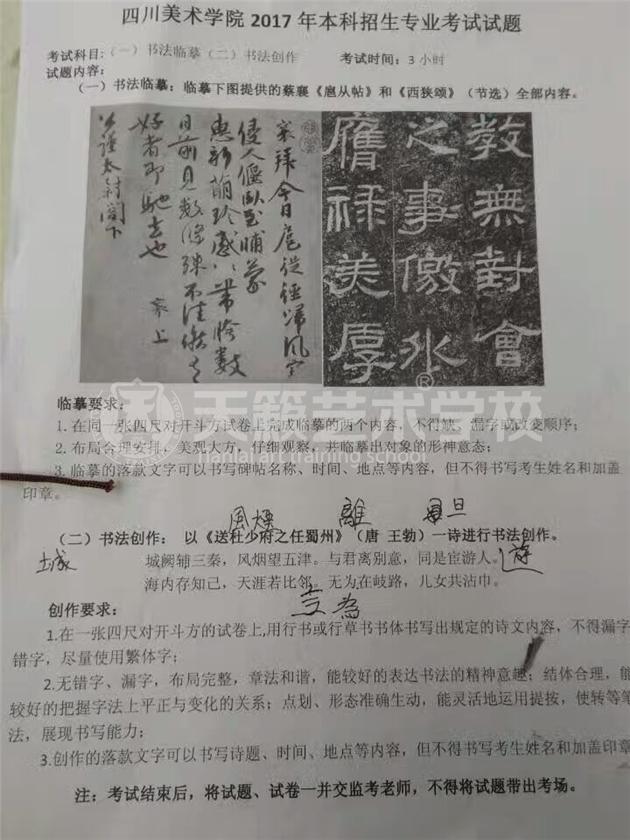 四川美术学院 2017 年本科招生专业考试试题
考试科目:(一)书法临摹(二)书法创作 考试时间:3 小时
试题内容:
(一)书法临摹:临摹下图提供的蔡襄《扈从帖》和《西狭颂》(节选)全部内容。
襄拜今日扈從徑歸風寒
侵人偃臥至晡蒙
惠新萌珍感珍感帶胯數
日前見數條殊不佳候有
好者即馳去也
襄上
公謹太尉閣下
教無對會
之事儌
膺祿美厚
天籁艺术学校
tianlai art training school
临摹要求:
1. 在同一张四尺对开斗方试卷上完成临摹的两个内容,不得缺、漏字或改变顺序;
2. 布局合理安排,美观大方,仔细观察,并临摹出对象的形神意态;
3. 临摹的落款文字可以书写碑帖名称、时间、地点等内容,但不得书写考生姓名和加盖
印章。
風煙 離
(二)书法创作: 以《送杜少府之任蜀州》(唐 王勃)一诗进行书法创作。
城阙辅三秦,风烟望五津。与君离别意,同是宦游人。
城 遊
海内存知己,天涯若比邻。无为在岐路,儿女共沾巾。
為
创作要求:
1.在一张四尺对开斗方的试卷上,用行书或行草书书体书写出规定的诗文内容,不得漏字
错字,尽量使用繁体字;
2.无错字、漏字,布局完整,章法和谐,能较好的表达书法的精神意趣;结体合理,能
较好的把握字法上平正与变化的关系;点划、形态准确生动,能灵活地运用提按,使转等笔
法,展现书写能力;
3.创作的落款文字可以书写诗题、时间、地点等内容,但不得书写考生姓名和加盖印章
注:考试结束后,将试题、试卷一并交监考老师,不得将试题带出考场。